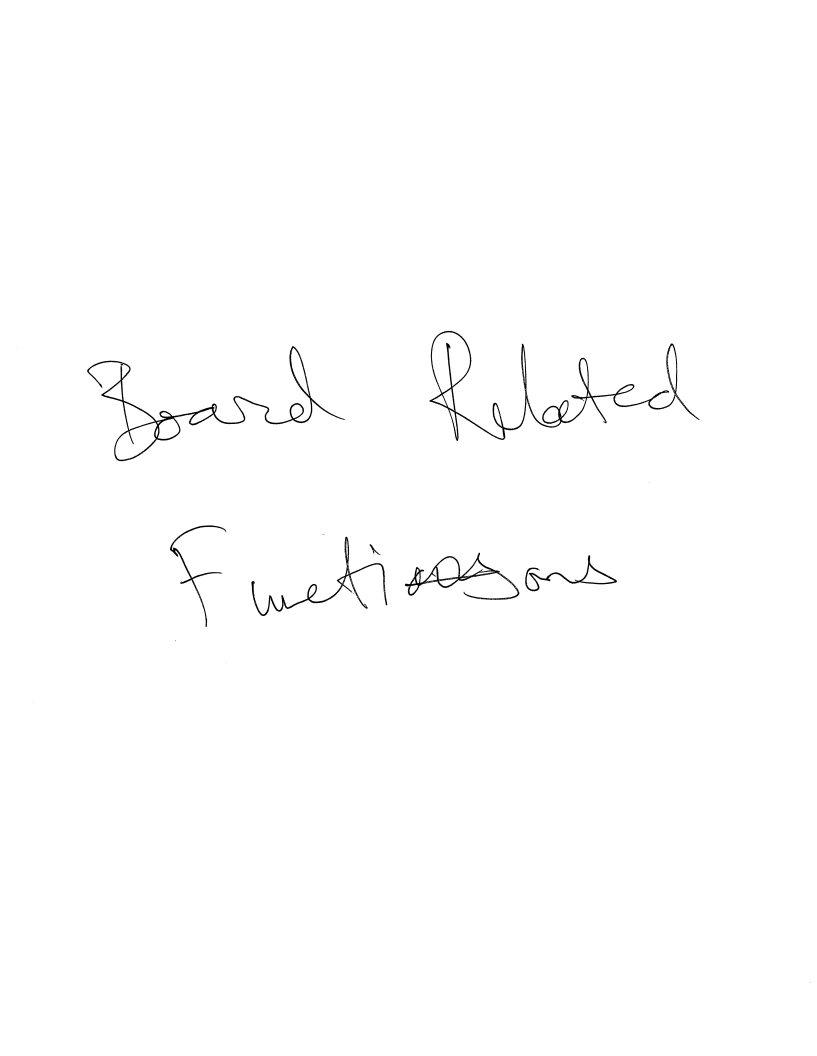 Board Related
Functions